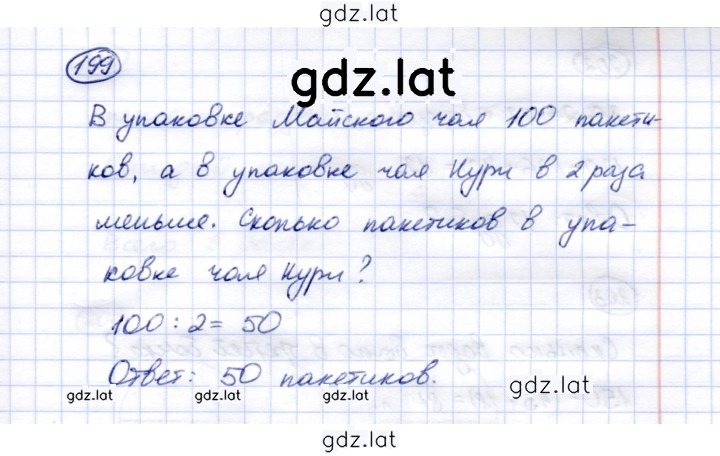 gdz.lat
199
gdz.lat
В упаковке Майского чая 100 пакети-
ков, а в упаковке чая Нури в 2 раза
меньше. Сколько пакетиков в упа-
ковке чая Нури?
100 : 2 = 50
Ответ: 50 пакетиков.
gdz.lat gdz.lat gdz.lat
gdz.lat